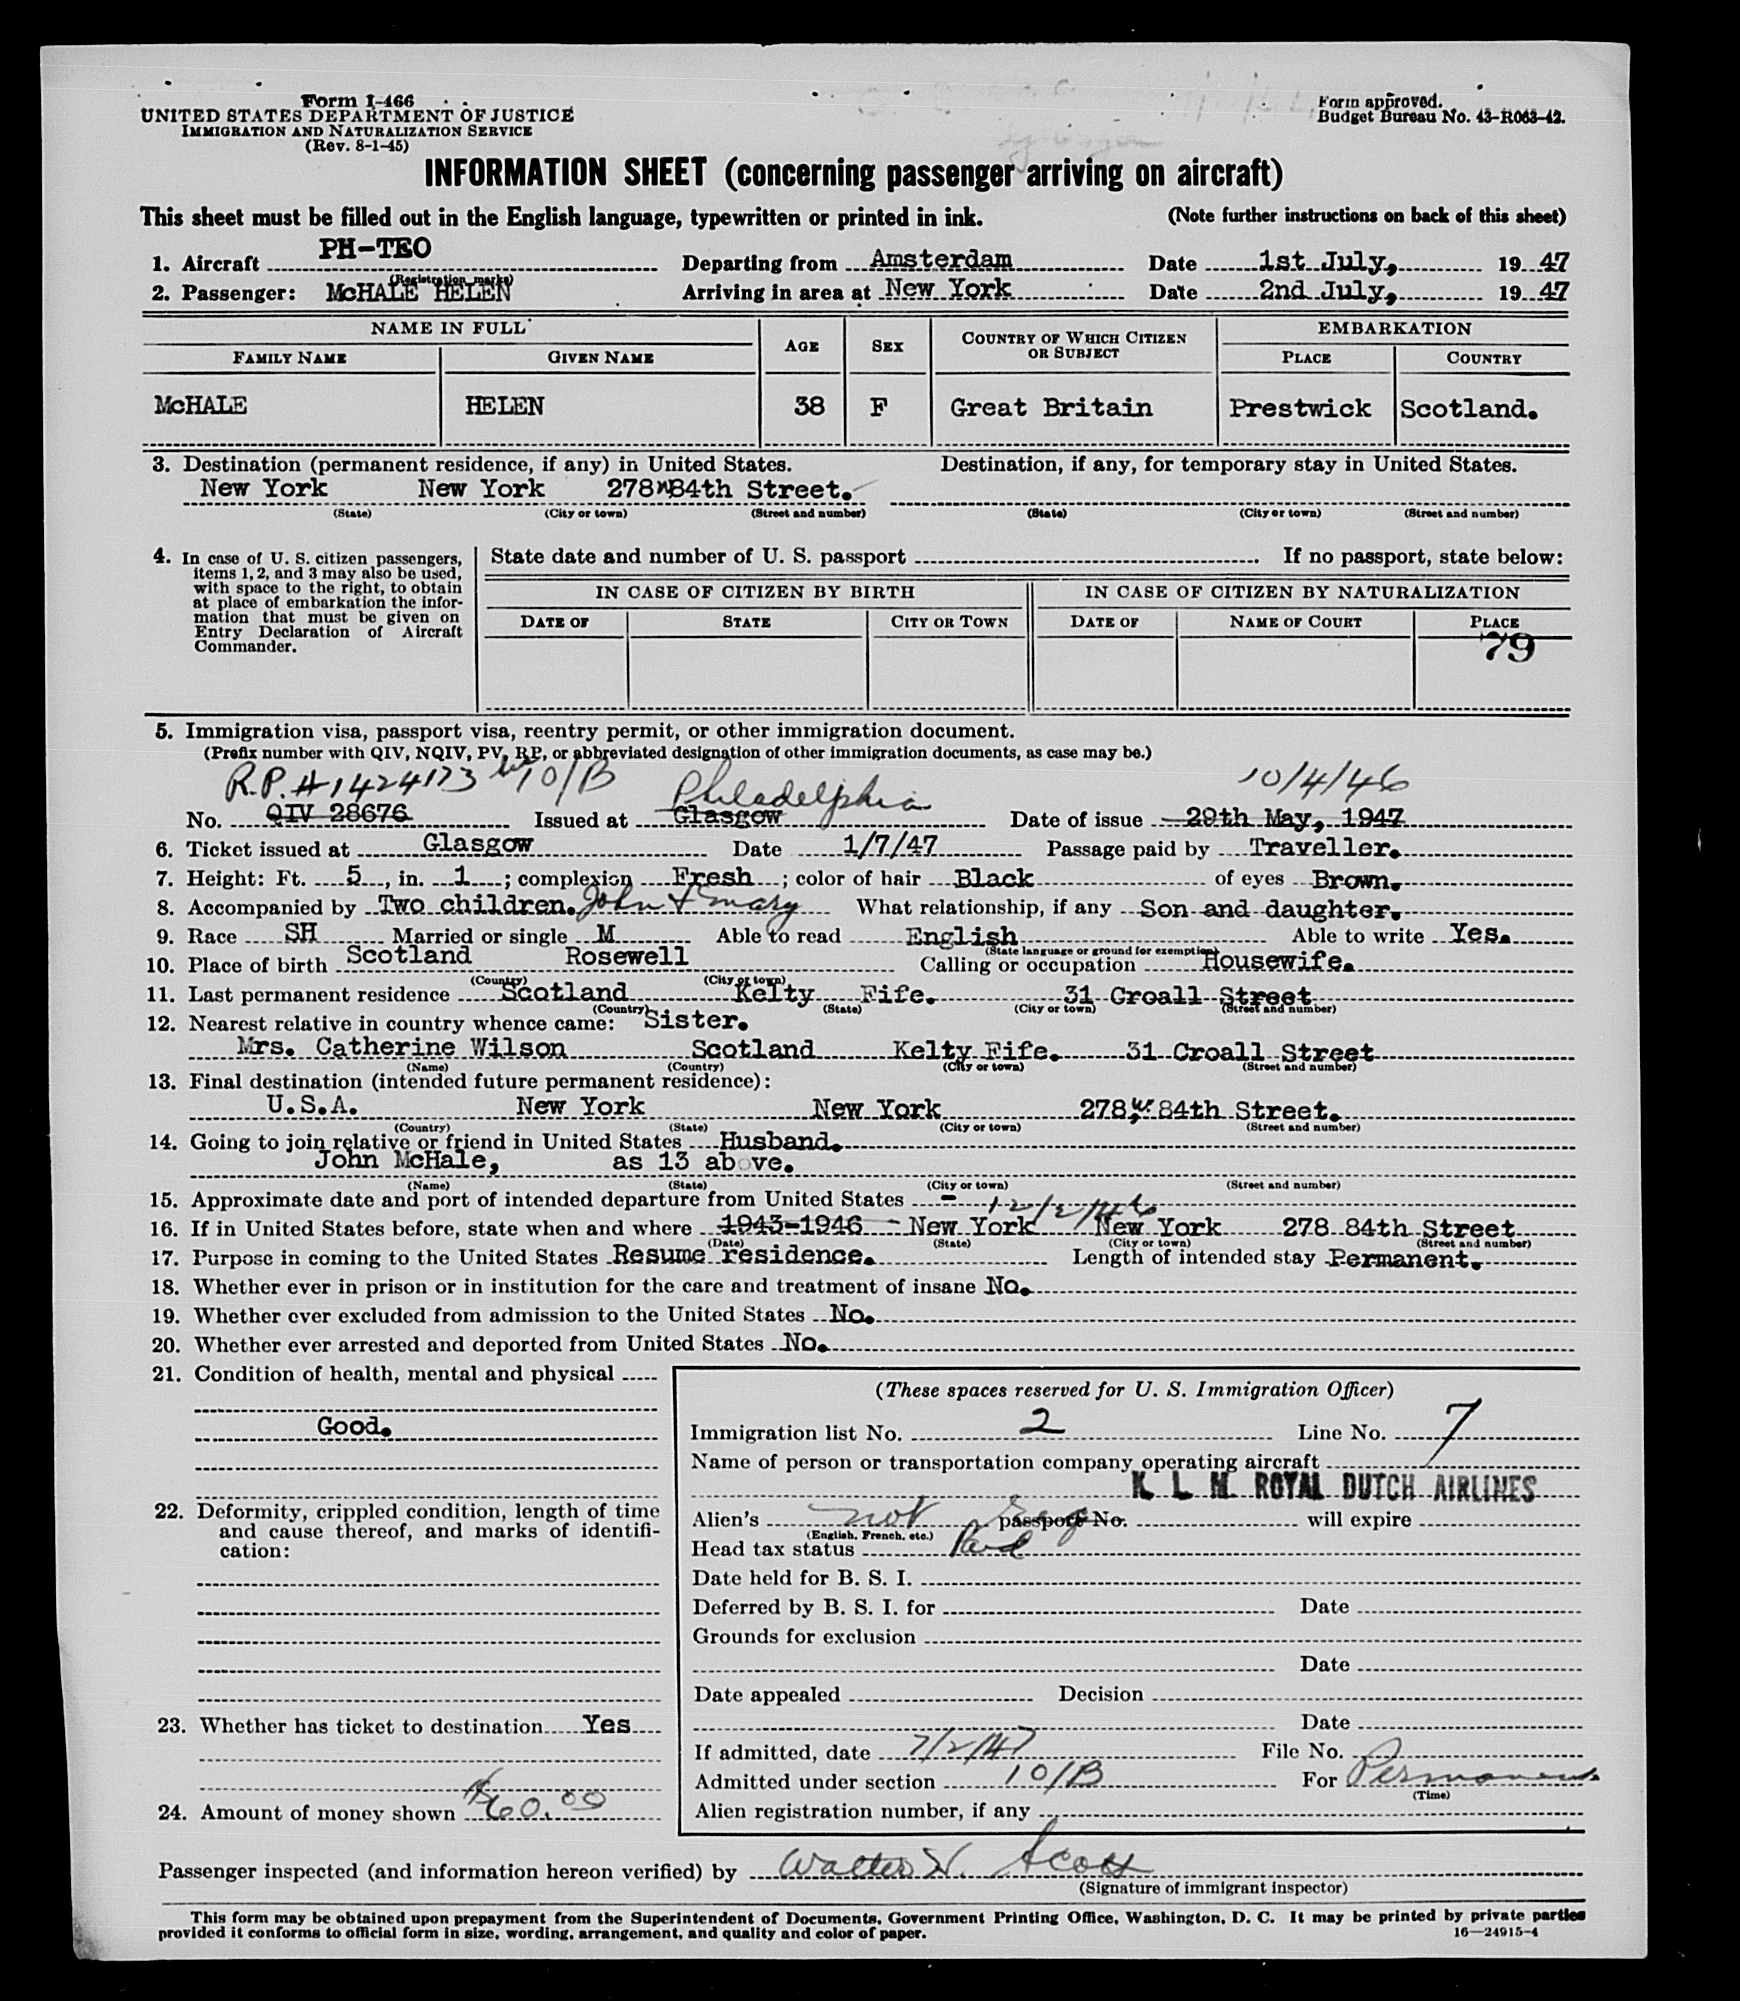 Form I-466
UNITED STATES DEPARTMENT OF JUSTICE
IMMIGRATION AND NATURALIZATION SERVICE
(Rev. 8-1-45)
Form approved.
Budget Bureau No. 43-R063-42.
INFORMATION SHEET (concerning passenger arriving on aircraft)
This sheet must be filled out in the English language, typewritten or printed in ink. (Note further instructions on back of this sheet)
1. Aircraft PH-TEO Departing from Amsterdam Date 1st July, 1947
(Registration marks)
2. Passenger: McHALE HELEN Arriving in area at New York Date 2nd July, 1947
NAME IN FULL AGE SEX COUNTRY OF WHICH CITIZEN OR SUBJECT EMBARKATION
FAMILY NAME GIVEN NAME PLACE COUNTRY
McHALE HELEN 38 F Great Britain Prestwick Scotland.
3. Destination (permanent residence, if any) in United States. Destination, if any, for temporary stay in United States.
New York New York 278 W 84th Street.
(State) (City or town) (Street and number) (State) (City or town) (Street and number)
4. In case of U. S. citizen passengers, items 1, 2, and 3 may also be used, with space to the right, to obtain at place of embarkation the information that must be given on Entry Declaration of Aircraft Commander.
State date and number of U. S. passport If no passport, state below:
IN CASE OF CITIZEN BY BIRTH IN CASE OF CITIZEN BY NATURALIZATION
DATE OF STATE CITY OR TOWN DATE OF NAME OF COURT PLACE
79
5. Immigration visa, passport visa, reentry permit, or other immigration document.
(Prefix number with QIV, NQIV, PV, RP, or abbreviated designation of other immigration documents, as case may be.)
R.P. #1424173 10/B Philadelphia 10/4/46
No. QIV 28676 Issued at Glasgow Date of issue 29th May, 1947
6. Ticket issued at Glasgow Date 1/7/47 Passage paid by Traveller.
7. Height: Ft. 5, in. 1; complexion Fresh; color of hair Black of eyes Brown.
8. Accompanied by Two children. John + Mary What relationship, if any Son and daughter.
9. Race SH Married or single M Able to read English Able to write Yes.
(State language or ground for exemption)
10. Place of birth Scotland Rosewell Calling or occupation Housewife.
(Country) (City or town)
11. Last permanent residence Scotland Kelty Fife. 31 Croall Street
(Country) (State) (City or town) (Street and number)
12. Nearest relative in country whence came: Sister.
Mrs. Catherine Wilson Scotland Kelty Fife. 31 Croall Street
(Name) (Country) (City or town) (Street and number)
13. Final destination (intended future permanent residence):
U.S.A. New York New York 278 W. 84th Street.
(Country) (State) (City or town) (Street and number)
14. Going to join relative or friend in United States Husband.
John McHale, as 13 above.
(Name) (State) (City or town) (Street and number)
15. Approximate date and port of intended departure from United States -
12/2/46
16. If in United States before, state when and where 1943-1946 - New York New York 278 84th Street
(Date) (State) (City or town) (Street and number)
17. Purpose in coming to the United States Resume residence. Length of intended stay Permanent.
18. Whether ever in prison or in institution for the care and treatment of insane No.
19. Whether ever excluded from admission to the United States No.
20. Whether ever arrested and deported from United States No.
21. Condition of health, mental and physical
Good.
22. Deformity, crippled condition, length of time and cause thereof, and marks of identification:
23. Whether has ticket to destination Yes
24. Amount of money shown $60.00
(These spaces reserved for U. S. Immigration Officer)
Immigration list No. 2 Line No. 7
Name of person or transportation company operating aircraft
K L M ROYAL DUTCH AIRLINES
Alien's not passport No. will expire
(English, French, etc.)
Head tax status Paid
Date held for B. S. I.
Deferred by B. S. I. for Date
Grounds for exclusion
Date
Date appealed Decision
Date
If admitted, date 7/2/47 File No.
Admitted under section 10/B For Permanent
(Time)
Alien registration number, if any
Passenger inspected (and information hereon verified) by Walter W. Scott
(Signature of immigrant inspector)
This form may be obtained upon prepayment from the Superintendent of Documents, Government Printing Office, Washington, D. C. It may be printed by private parties
provided it conforms to official form in size, wording, arrangement, and quality and color of paper.
16—24915-4